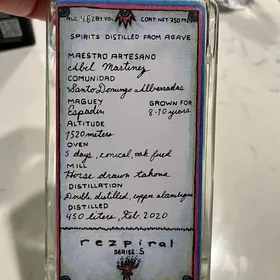 ALC. 46% BY VOL. CONT. NET 750 ML
SPIRITS DISTILLED FROM AGAVE
MAESTRO ARTESANO
Abel Martinez
COMUNIDAD
Santo Domingo Albarradas
MAGUEY GROWN FOR
Espadin 8-10 years
ALTITUDE
1520 meters
OVEN
5 days, conical, oak fired
MILL
Horse drawn tahona
DISTILLATION
Double distilled, copper alambique
DISTILLED
450 liters, Feb. 2020
rezpiral
SERIES: S